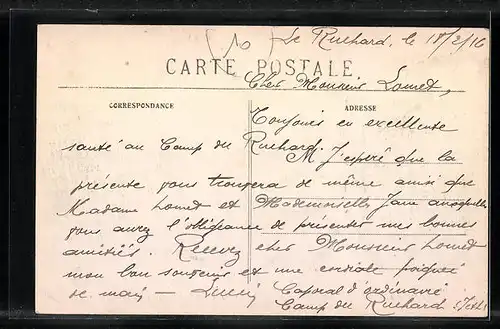 Le Ruchard, le 18/2/16
CARTE POSTALE
Cher Monsieur Lomet,
CORRESPONDANCE
ADRESSE
Toujours en excellente
santé au Camp du Ruchard. J'espère que la
présente vous trouvera de même ainsi que
Madame Lomet et Mademoiselle Jane auxquelles
vous aurez l'obligeance de présenter mes bonnes
amitiés. Recevez cher Monsieur Lomet
mon bon souvenir et une cordiale poignée
de main — Caporal d'ordinaire
Camp du Ruchard